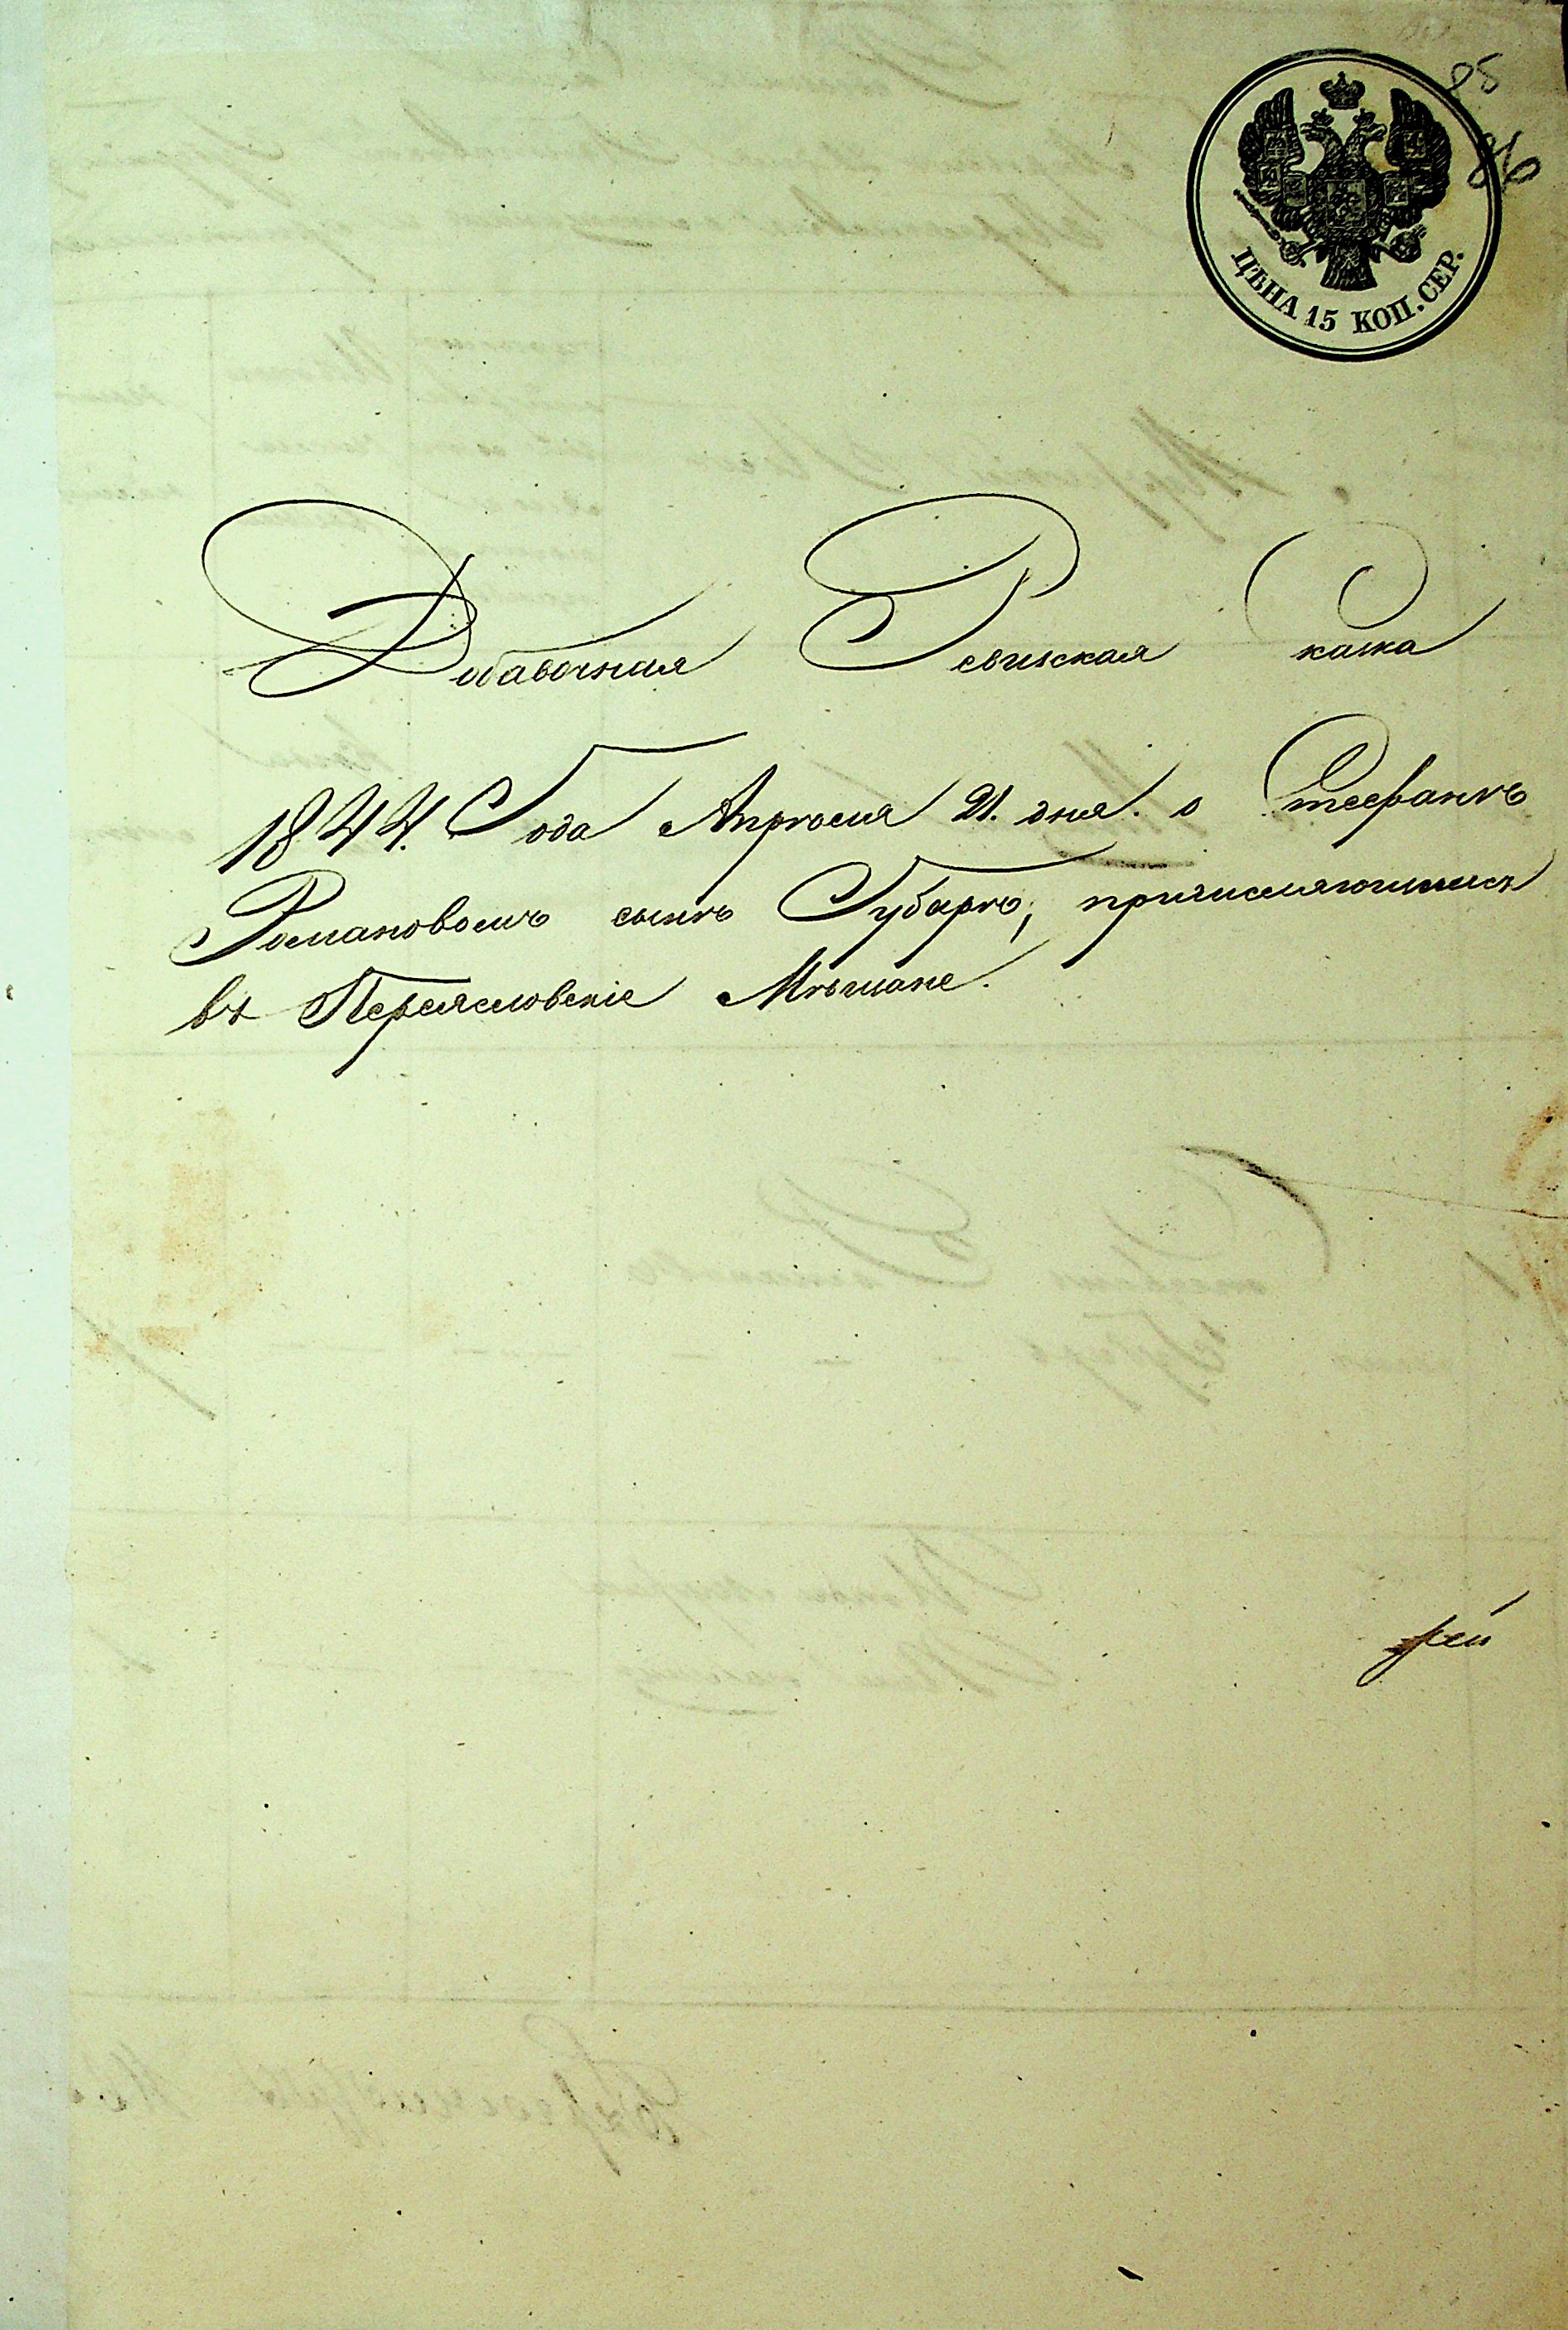 85
86
ЦѢНА 15 КОП. СЕР.
Добавочная Ревизская Сказка
1844. Года Апрѣля 21. дня. о Стефанѣ
Романовомъ сынѣ Губарѣ, причисляющимся
въ Переясловскіе Мѣщане.